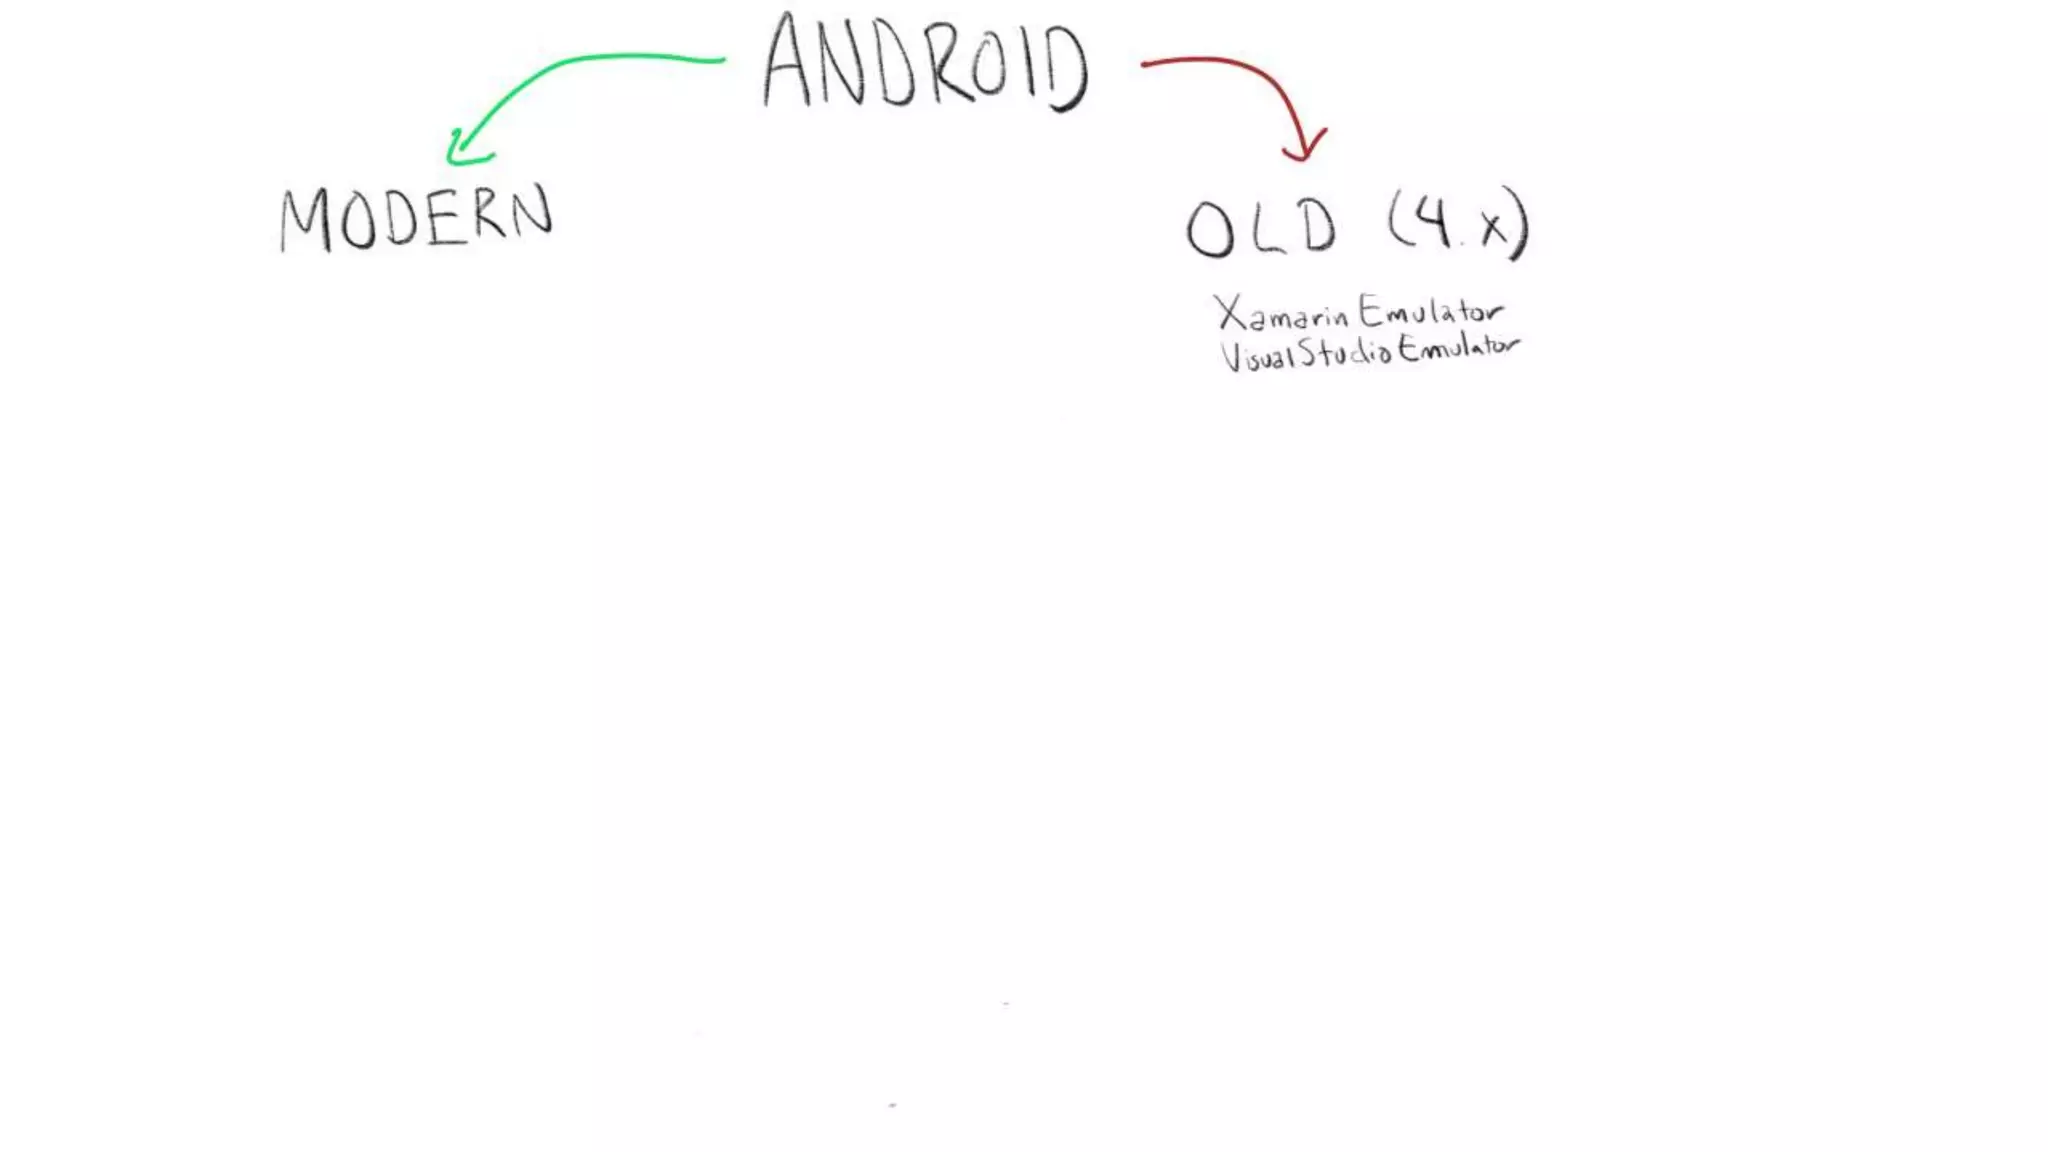 ANDROID
MODERN
OLD (4.x)
Xamarin Emulator
Visual Studio Emulator